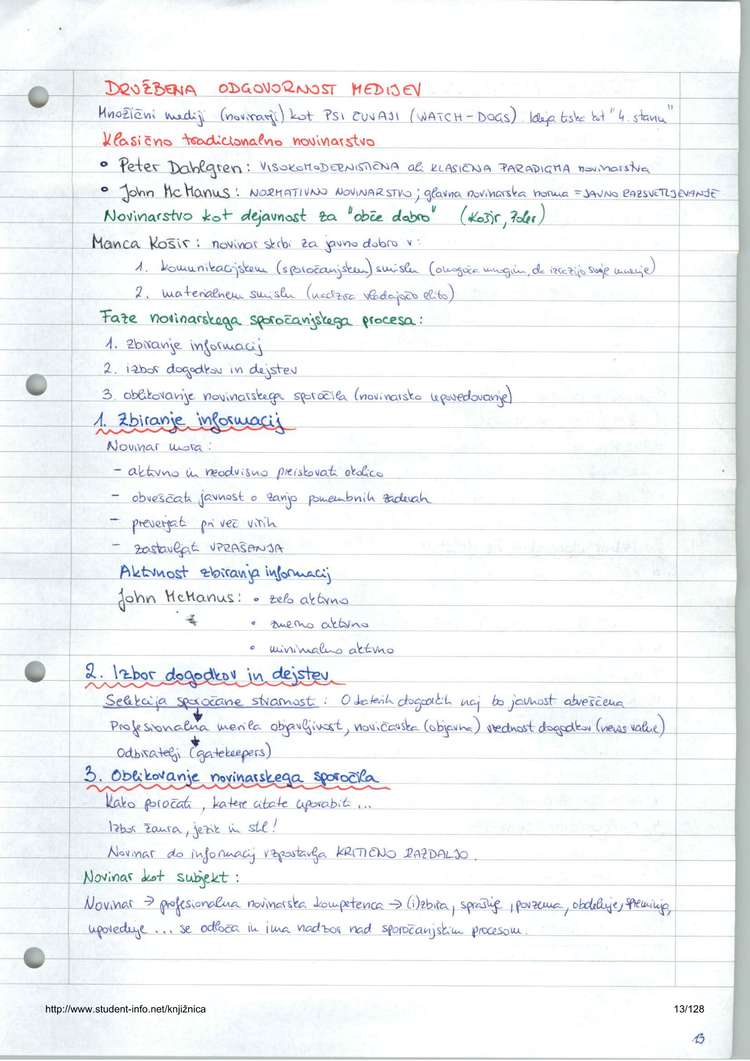 DRUŽBENA ODGOVORNOST MEDIJEV
Množični mediji (novinarji) kot PSI ČUVAJI (WATCH-DOGS). Ideja tiska kot "4. stanu"
Klasično tradicionalno novinarstvo
• Peter Dahlgren: VISOKOMODERNISTIČNA ali KLASIČNA PARADIGMA novinarstva
• John McManus: NORMATIVNO NOVINARSTVO; glavna novinarska norma = JAVNO RAZSVETLJEVANJE
Novinarstvo kot dejavnost za "obče dobro" (Košir, Poler)
Manca Košir: novinar skrbi za javno dobro v:
1. komunikacijskem (sporočanjskem) smislu (omogoča mnogim, da izrazijo svoje mnenje)
2. materialnem smislu (nadzira vladajočo elito)
Faze novinarskega sporočanjskega procesa:
1. zbiranje informacij
2. izbor dogodkov in dejstev
3. oblikovanje novinarskega sporočila (novinarsko upovedovanje)
1. Zbiranje informacij
Novinar mora:
- aktivno in neodvisno preiskovati okolico
- obveščati javnost o zanjo pomembnih zadevah
- preverjati pri več virih
- zastavljati VPRAŠANJA
Aktivnost zbiranja informacij
John McManus: • zelo aktivno
• zmerno aktivno
• minimalno aktivno
2. Izbor dogodkov in dejstev
Selekcija sporočane stvarnosti: O katerih dogodkih naj bo javnost obveščena
Profesionalna merila objavljivost, novičarska (objavna) vrednost dogodkov (news value)
Odbiratelji (gatekeepers)
3. Oblikovanje novinarskega sporočila
Kako poročati, katere citate uporabiti ...
Izbor žanra, jezik in stil!
Novinar do informacij vzpostavlja KRITIČNO RAZDALJO.
Novinar kot subjekt:
Novinar → profesionalna novinarska kompetenca → (i)zbira, sprašuje, povzema, obdeluje, spreminja,
upoveduje ... se odloča in ima nadzor nad sporočanjskim procesom.
http://www.student-info.net/knjižnica 13/128
13